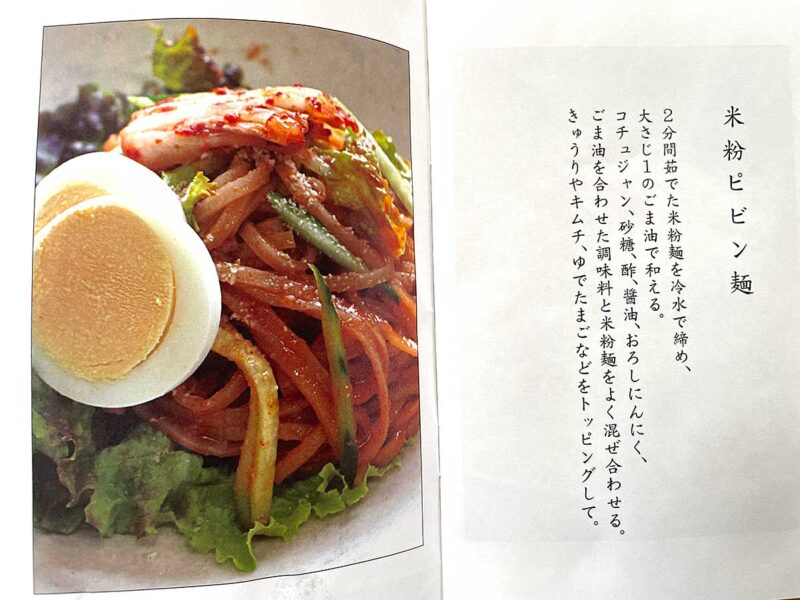 米粉ビビン麺
2分間茹でた米粉麺を冷水で締め、
大さじ1のごま油で和える。
コチュジャン、砂糖、酢、醤油、おろしにんにく、
ごま油を合わせた調味料と米粉麺をよく混ぜ合わせる。
きゅうりやキムチ、ゆでたまごなどをトッピングして。